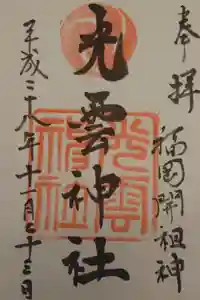 奉拝
福岡開祖神
光雲神社
平成二十八年十一月二十三日